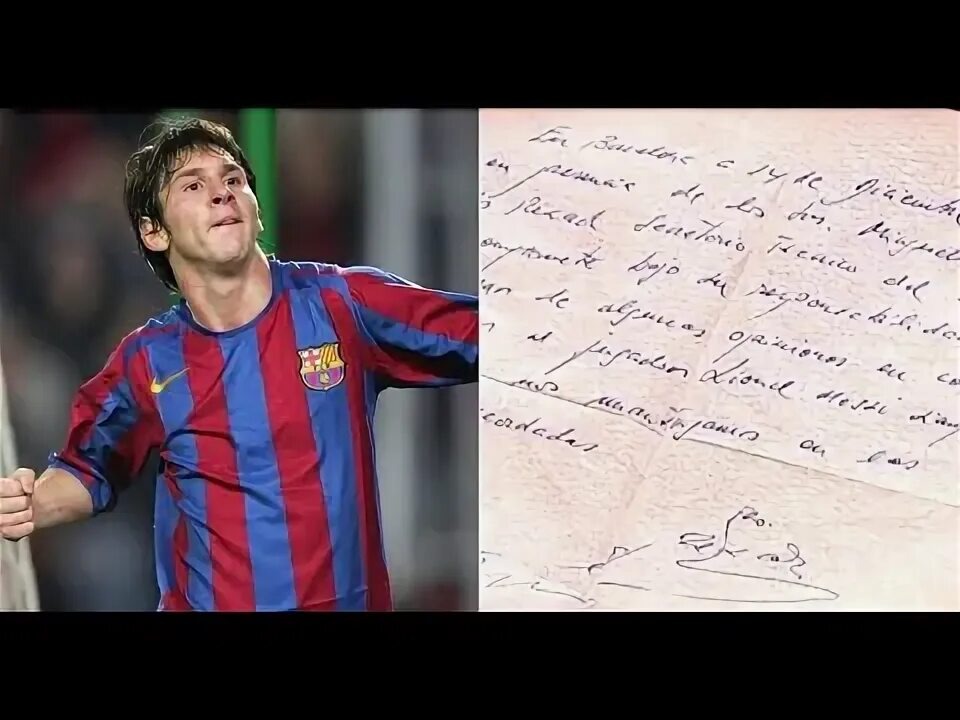 En Barcelona a 14 de Diciembre
en presencia de los Srs. Minguell
Rexach Secretario Técnico del
ompromete bajo su responsabilidad
de algunas opiniones en co
al jugador Lionel Messi siem
nos mantengamos en las
cordadas